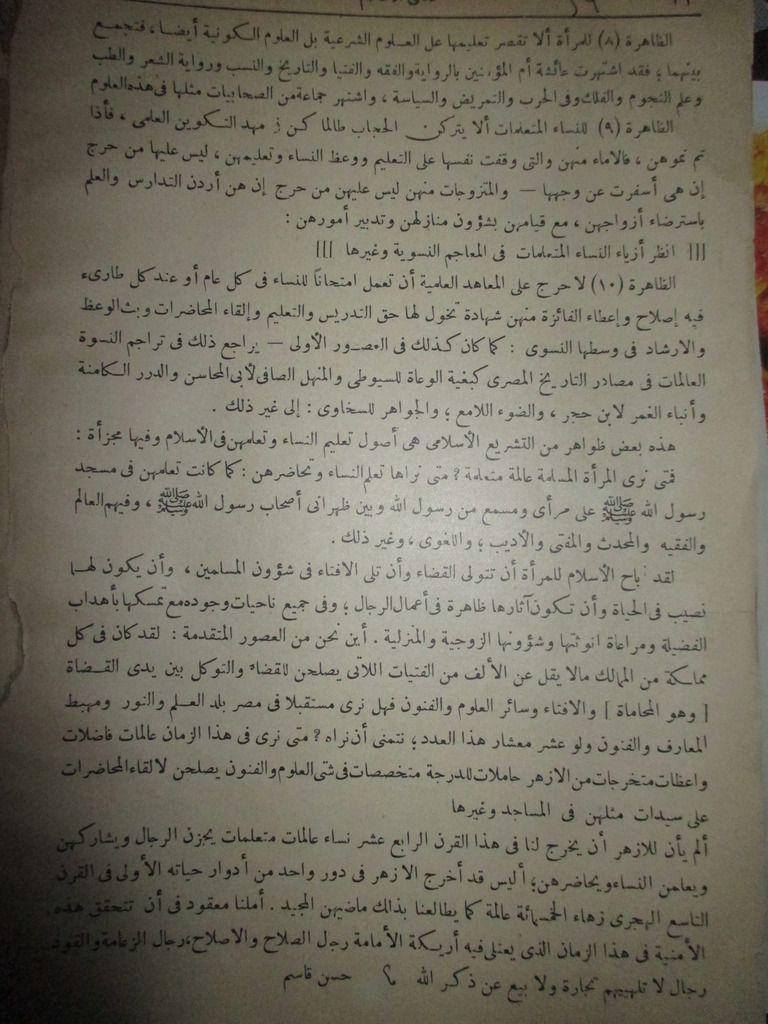 الظاهرة (٨) للمرأة ألا تقصر تعليمها على العلوم الشرعية بل العلوم الكونية أيضا، فتجمع
بينهما؛ فقد اشتهرت عائشة أم المؤمنين بالرواية والفقه والفتيا والتاريخ والنسب ورواية الشعر والطب
وعلم النجوم والفلك وفى الحرب والتمريض والسياسة، واشتهر جماعة من الصحابيات مثلها فى هذه العلوم
الظاهرة (٩) للنساء المتعلمات ألا يتركن الحجاب طالما كن فى مهد التكوين العلمى، فأذا
تم نموهن، فالاماء منهن والتى وقفت نفسها على التعليم ووعظ النساء وتعليمهن، ليس عليها من حرج
إن هى أسفرت عن وجهها — والمتزوجات منهن ليس عليهن من حرج إن هن أردن التدارس والعلم
باسترضاء أزواجهن، مع قيامهن بشؤون منازلهن وتدبير أمورهن:
||| انظر أزياء النساء المتعلمات فى المعاجم النسوية وغيرها |||
الظاهرة (١٠) لا حرج على المعاهد العلمية أن تعمل امتحاناً للنساء فى كل عام أو عند كل طارىء
فيه إصلاح وإعطاء الفائزة منهن شهادة تخول لها حق التدريس والتعليم وإلقاء المحاضرات وبث الوعظ
والارشاد فى وسطها النسوى: كما كان كذلك فى العصور الأولى — يراجع ذلك فى تراجم النسوة
العالمات فى مصادر التاريخ المصرى كبغية الوعاة للسيوطى والمنهل الصافى لأبى المحاسن والدرر الكامنة
وأنباء الغمر لابن حجر، والضوء اللامع؛ والجواهر للسخاوى: إلى غير ذلك.
هذه بعض ظواهر من التشريع الأسلامى هى أصول تعليم النساء وتعلمهن فى الأسلام وفيها مجزأة:
فمتى نرى المرأة المسلمة عالمة متعلمة؟ متى نراها تعلم النساء وتحاضرهن: كما كانت تعلمهن فى مسجد
رسول الله ﷺ على مرأى ومسمع من رسول الله وبين ظهرانى أصحاب رسول الله ﷺ، وفيهم العالم
والفقيه والمحدث والمفتى والأديب؛ واللغوى، وغير ذلك.
لقد أباح الأسلام للمرأة أن تتولى القضاء وأن تلى الافتاء فى شؤون المسلمين، وأن يكون لهـا
نصيب فى الحياة وأن تكون آثارها ظاهرة فى أعمال الرجال؛ وفى جميع ناحيات وجوده مع تمسكها بأهداب
الفضيلة ومراعاة انوثتها وشؤونها الزوجية والمنزلية. أين نحن من العصور المتقدمة: لقد كان فى كل
مملكة من الممالك مالا يقل عن الألف من الفتيات اللائى يصلحن للقضاء والتوكل بين يدى القضاة
[ وهو المحاماة ] والافتاء وسائر العلوم والفنون فهل نرى مستقبلا فى مصر بلد العلم والنور ومهبط
المعارف والفنون ولو عشر معشار هذا العدد؛ نتمنى أن نراه؟ متى نرى فى هذا الزمان عالمات فاضلات
واعظات متخرجات من الازهر حاملات للدرجة متخصصات فى شتى العلوم والفنون يصلحن لالقاء المحاضرات
على سيدات مثلهن فى المساجد وغيرها
ألم يأن للازهر أن يخرج لنا فى هذا القرن الرابع عشر نساء عالمات متعلمات يجزن الرجال ويشاركهن
ويعلمن النساء ويحاضرهن؛ أليس قد أخرج الازهر فى دور واحد من أدوار حياته الأولى فى القرن
التاسع الهجرى زهاء الخمسمائة عالمة كما يطالعنا بذلك ماضيهن المجيد. أملنا معقود فى أن تتحقق هذه
الأمنية فى هذا الزمان الذى يعتلى فيه أريكة الأمامة رجل الصلاح والاصلاح، رجال الزعامة والقود
رجال لا تلهيهم تجارة ولا بيع عن ذكر الله حسن قاسم